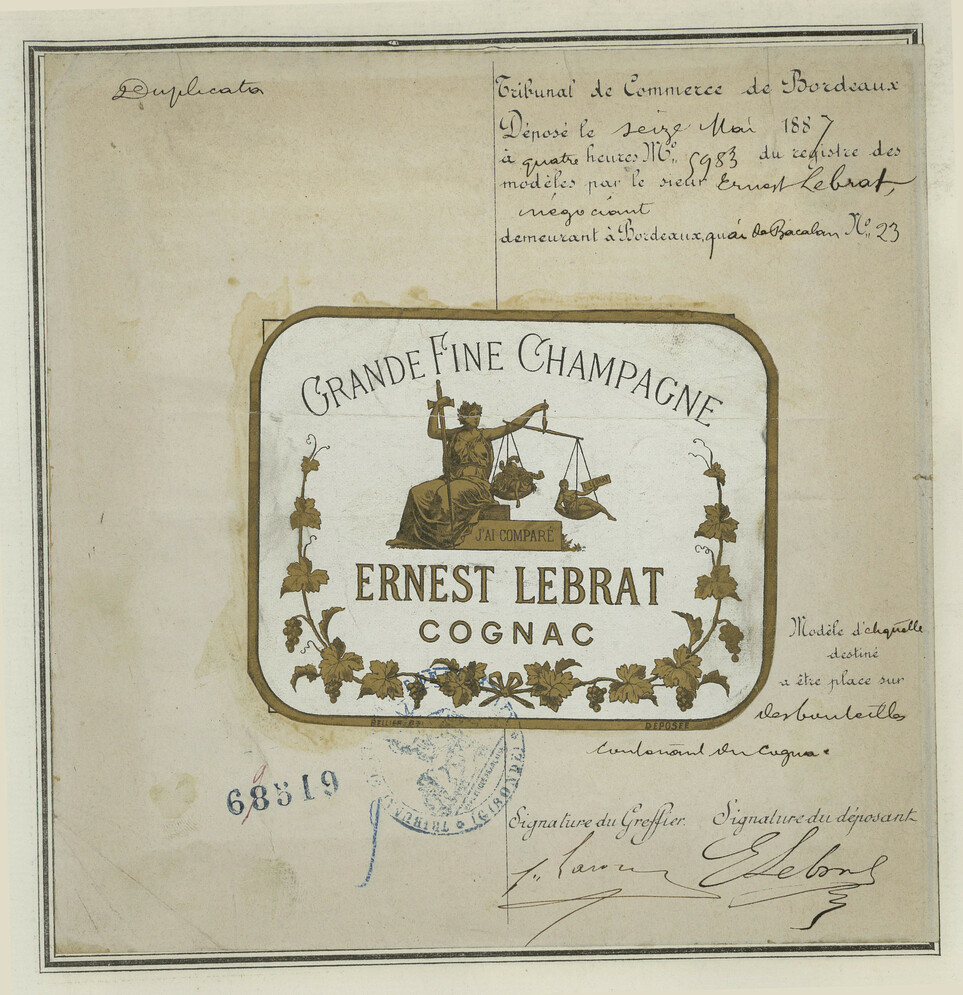 Duplicata
Tribunal de Commerce de Bordeaux
Déposé le seize Mai 1887
à quatre heures Nº 5983 du registre des
modèles par le sieur Ernest Lebrat,
négociant
demeurant à Bordeaux, quai de Bacalan Nº 23
GRANDE FINE CHAMPAGNE
J'AI COMPARÉ
ERNEST LEBRAT
COGNAC
DÉPOSÉE
Modèle d'étiquette
destiné
a être place sur
des bouteilles
contenant du Cognac
68519
TRIBUNAL
(GIRONDE)
Signature du Greffier. Signature du déposant
E Lebrat